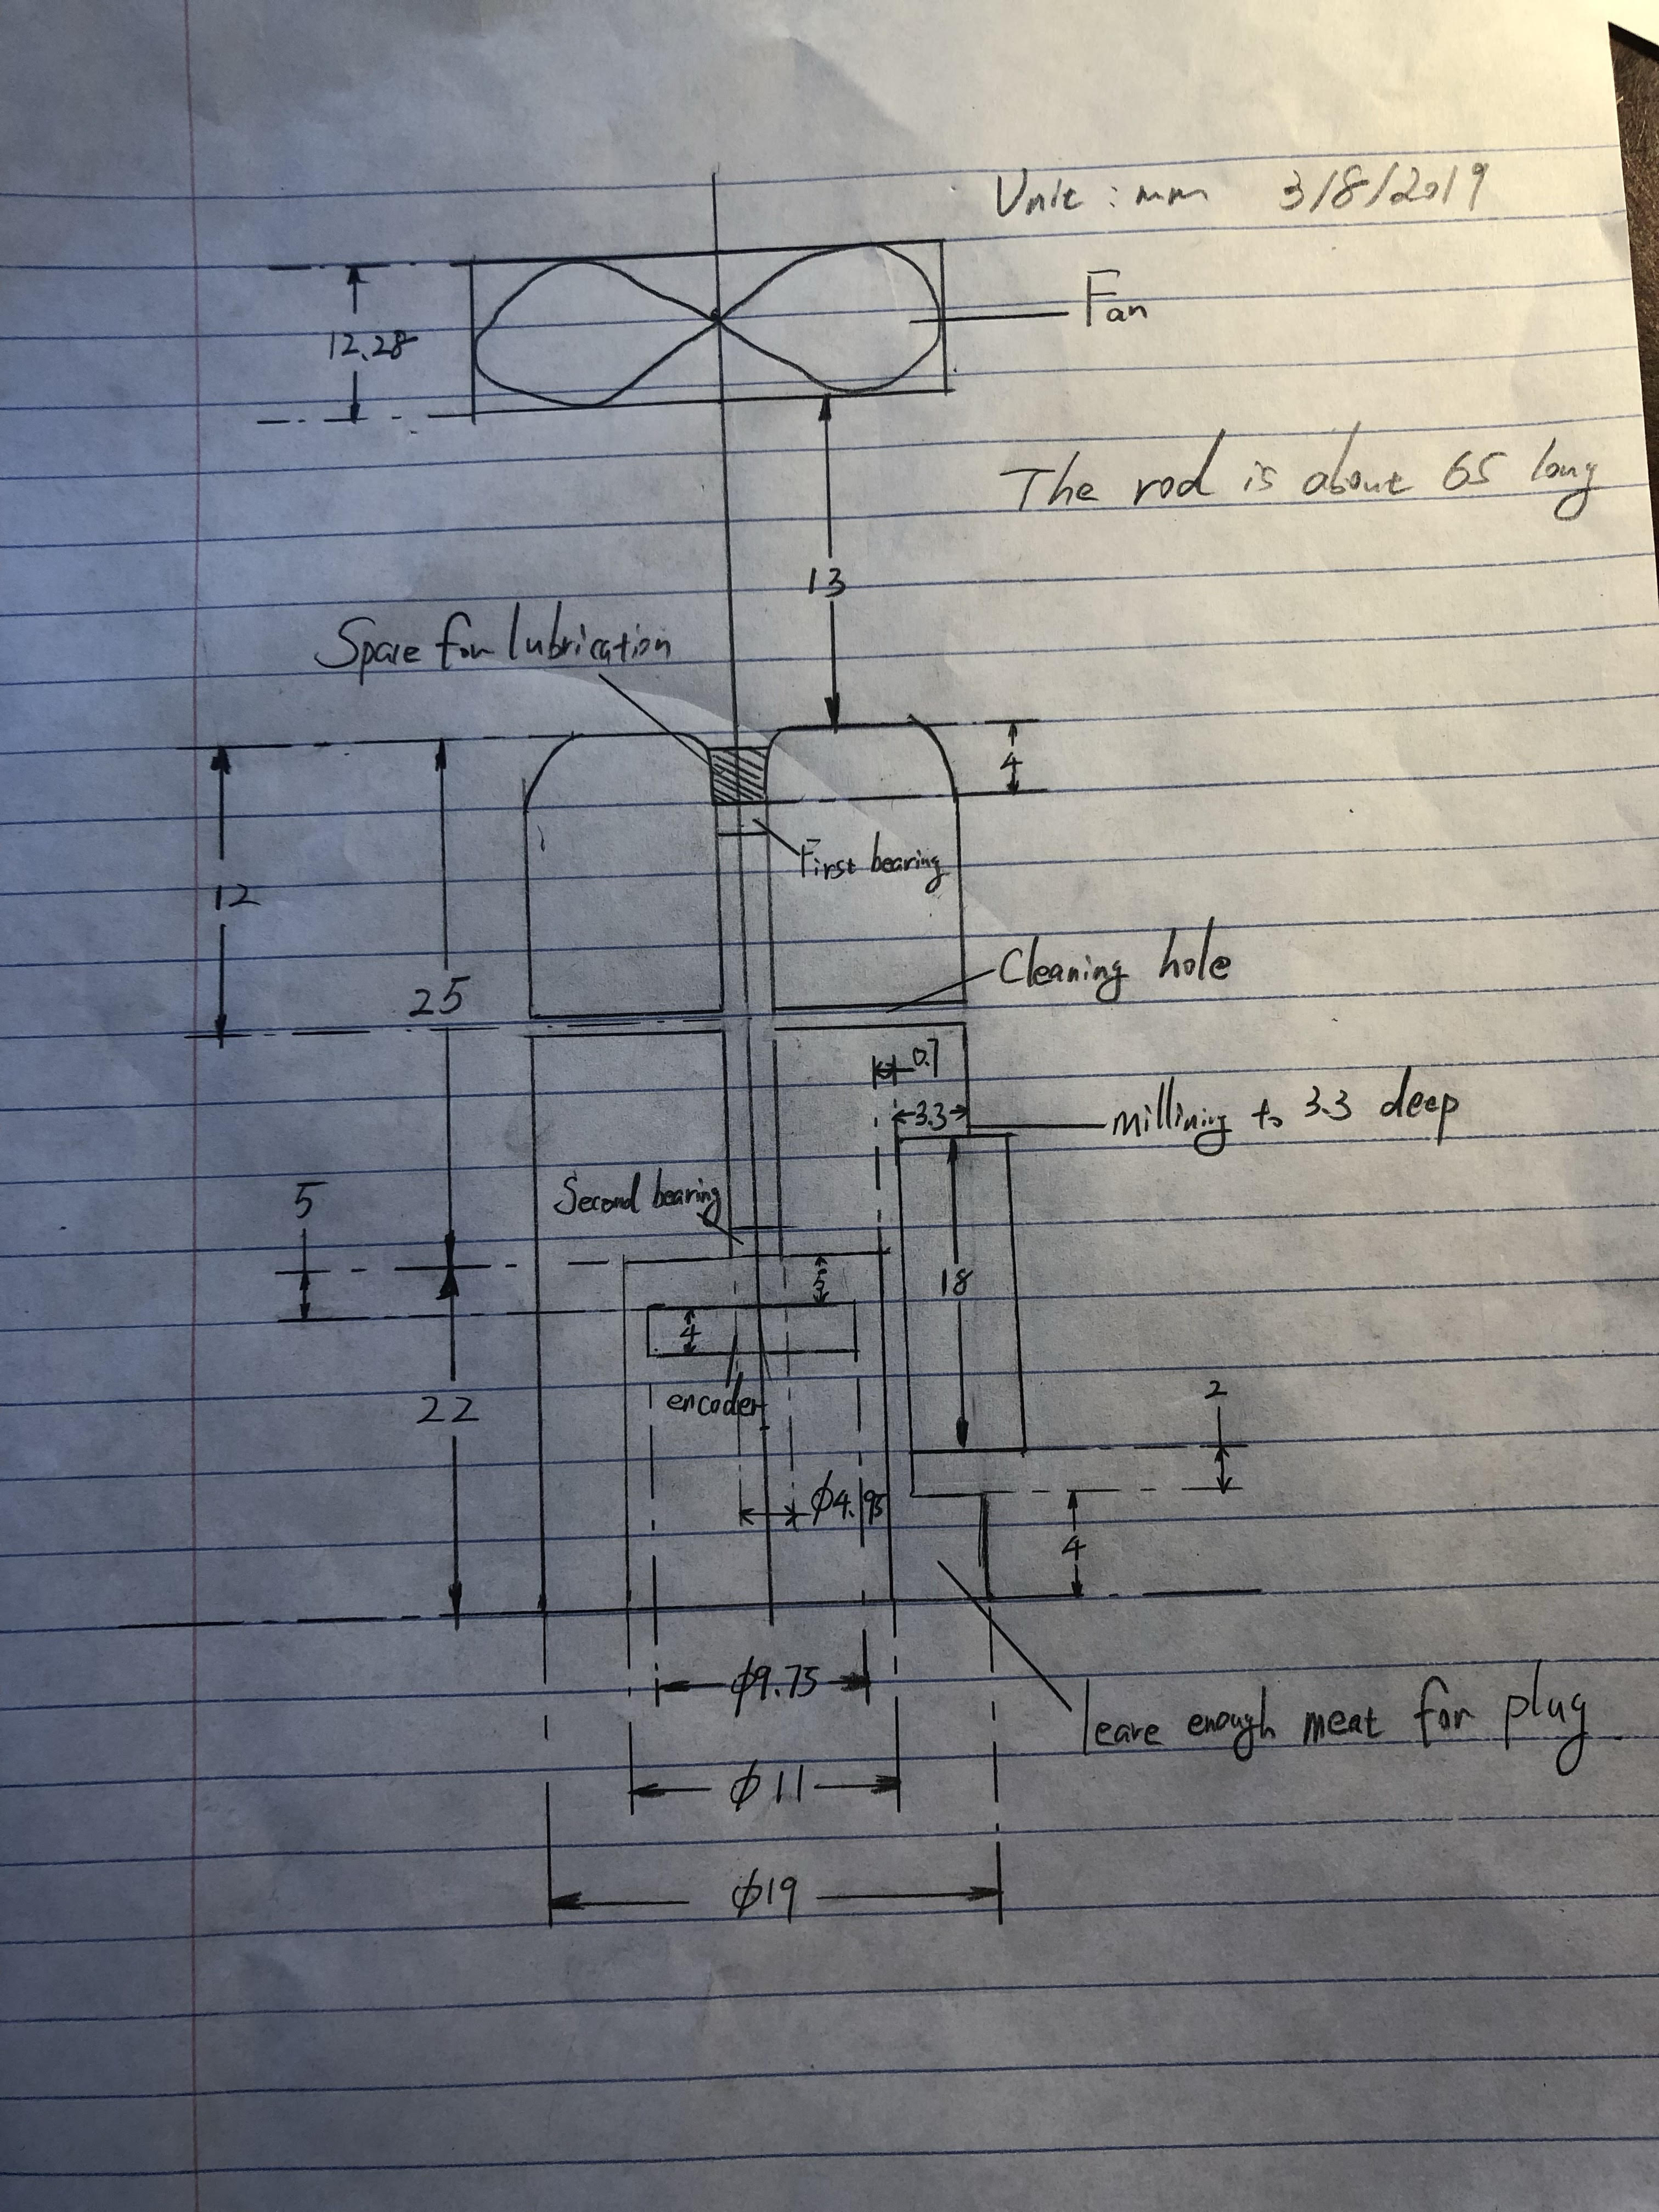 Unit : mm 3/8/2019
Fan
12.28
The rod is about 65 long
13
Spare for lubrication
4
First bearing
12
25
Cleaning hole
0.7
3.3
millining to 3.3 deep
Second bearing
5
5
18
4
encoder
22
2
ϕ4.95
4
ϕ9.75
leave enough meat for plug
ϕ11
ϕ19